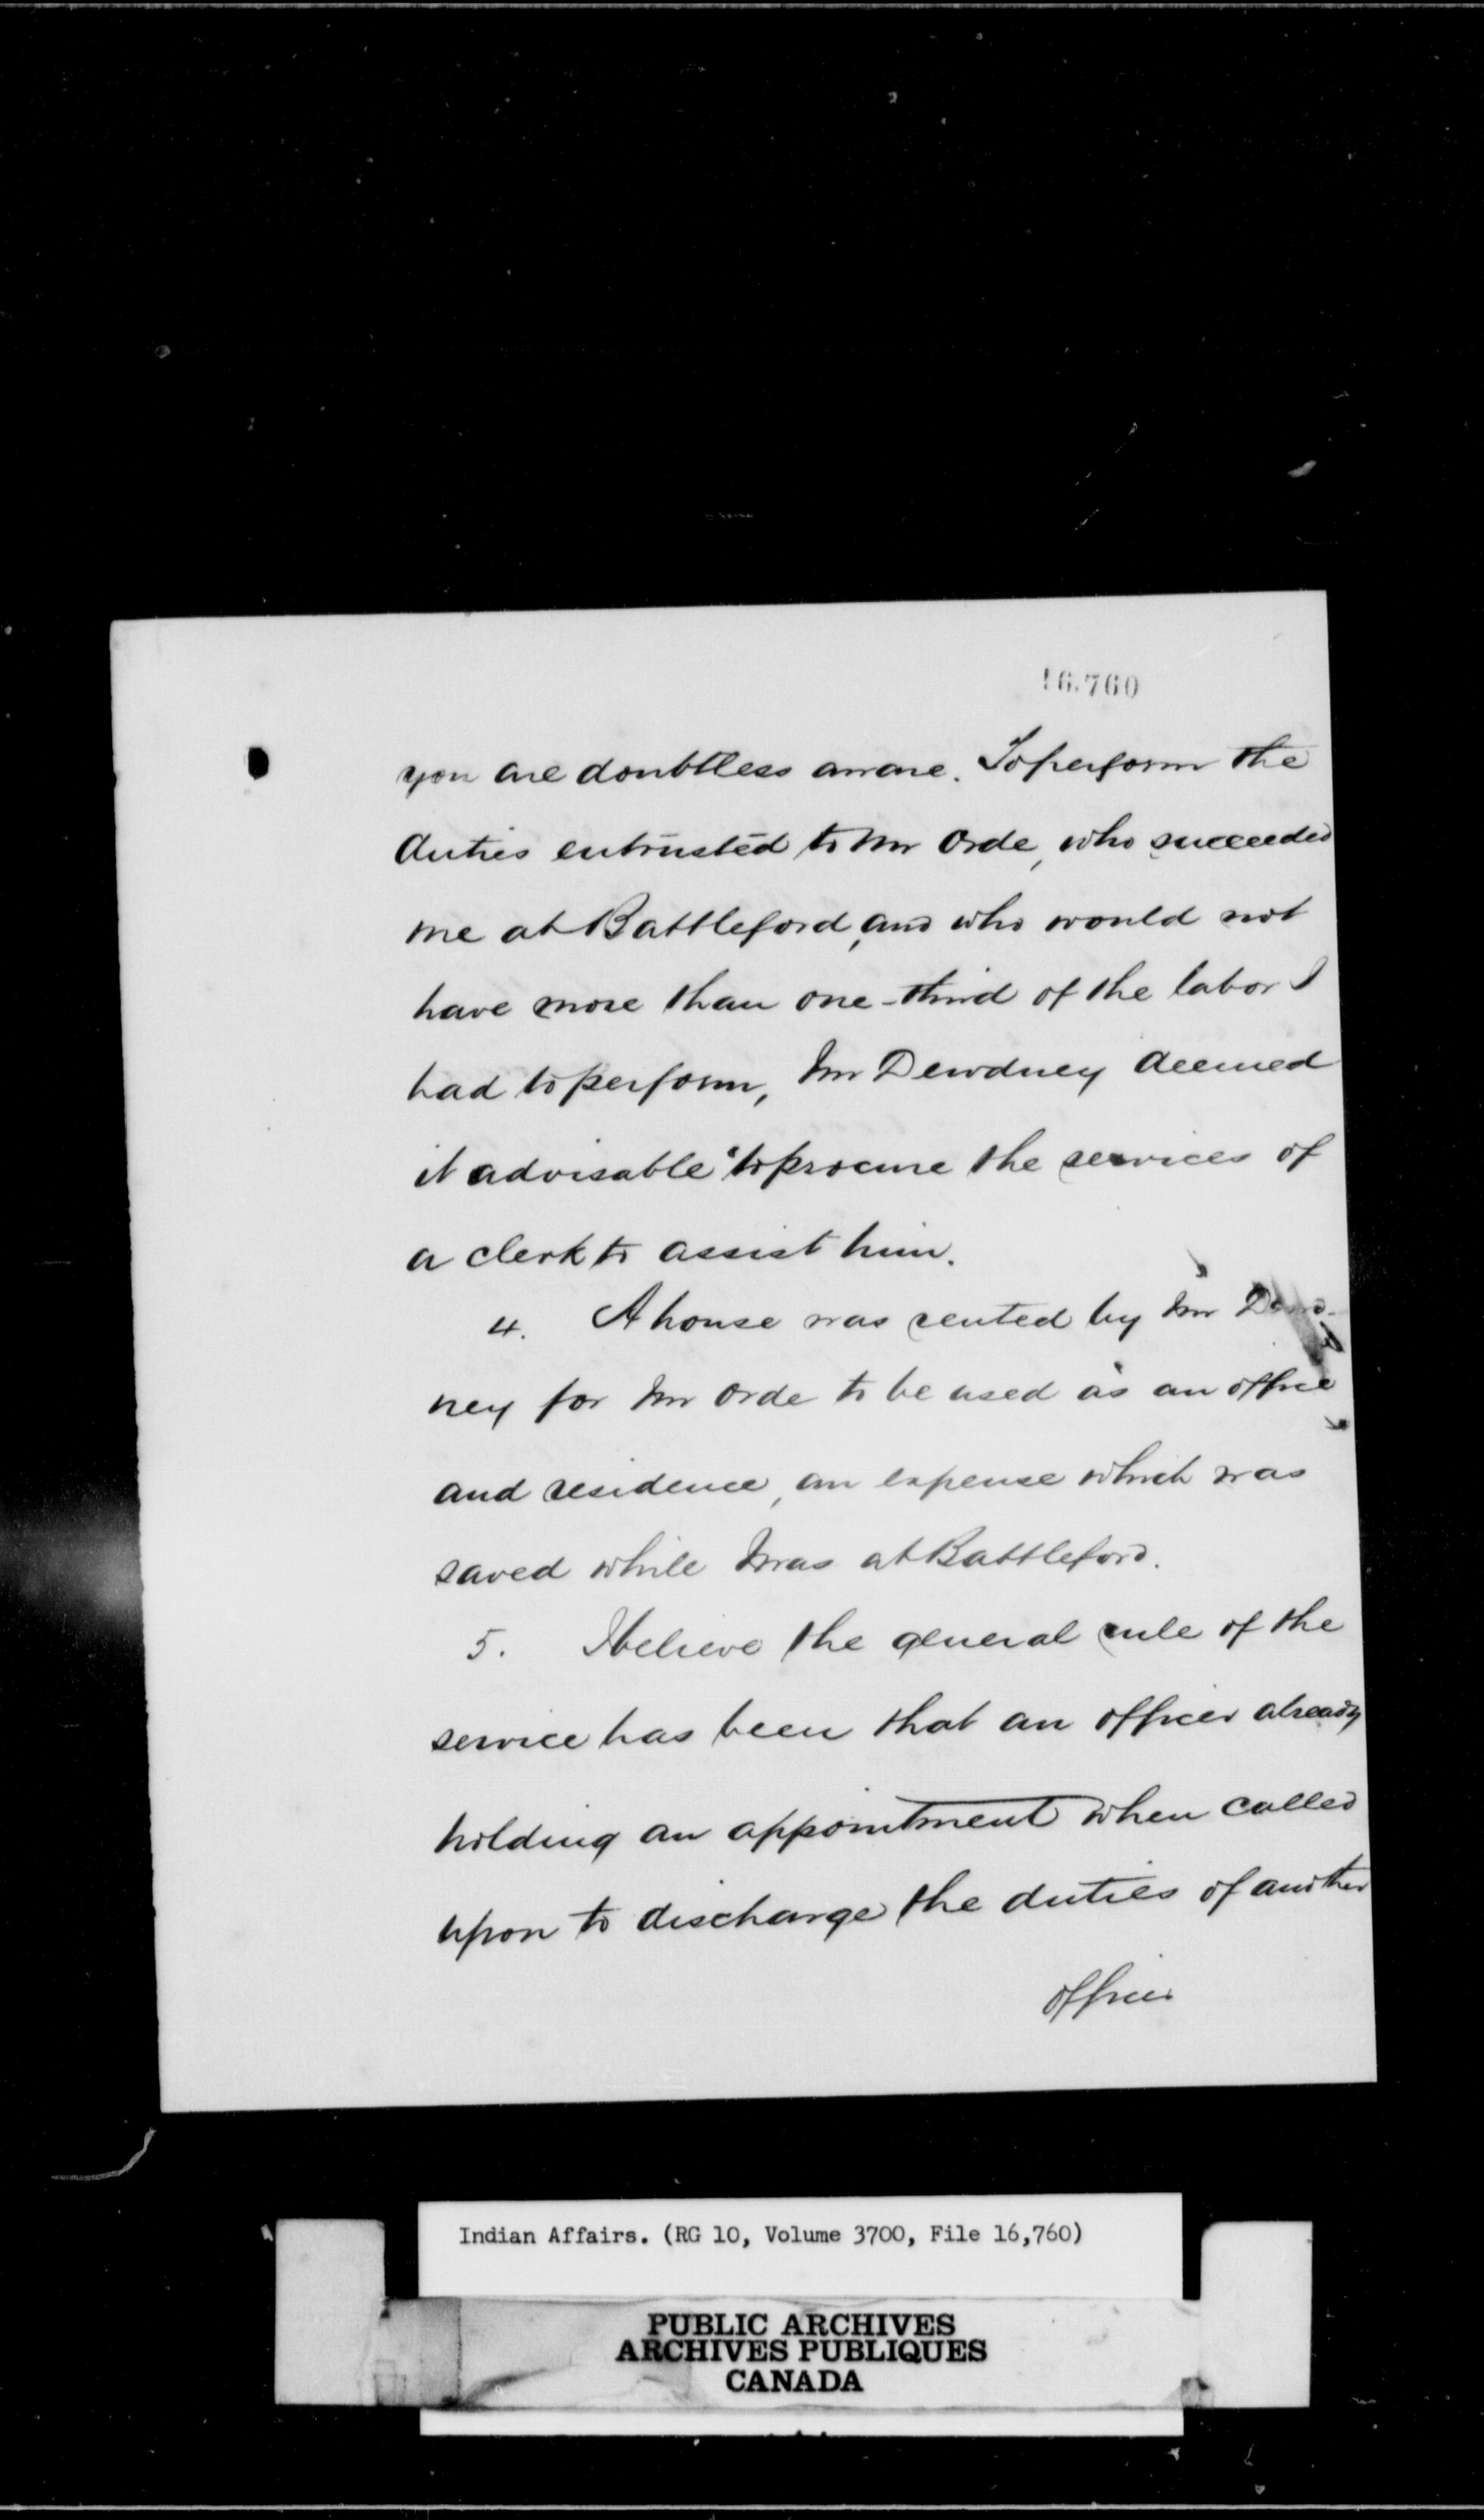 16,760
you are doubtless aware. To perform the
duties entrusted to Mr Orde, who succeeded
me at Battleford, and who would not
have more than one-third of the labor I
had to perform, Mr Dewdney deemed
it advisable to procure the services of
a clerk to assist him.
4. A house was rented by Mr Dewd-
ney for Mr Orde to be used as an office
and residence, an expense which was
saved while I was at Battleford.
5. I believe the general rule of the
service has been that an officer already
holding an appointment when called
upon to discharge the duties of another
officer
Indian Affairs. (RG 10, Volume 3700, File 16,760)
PUBLIC ARCHIVES
ARCHIVES PUBLIQUES
CANADA